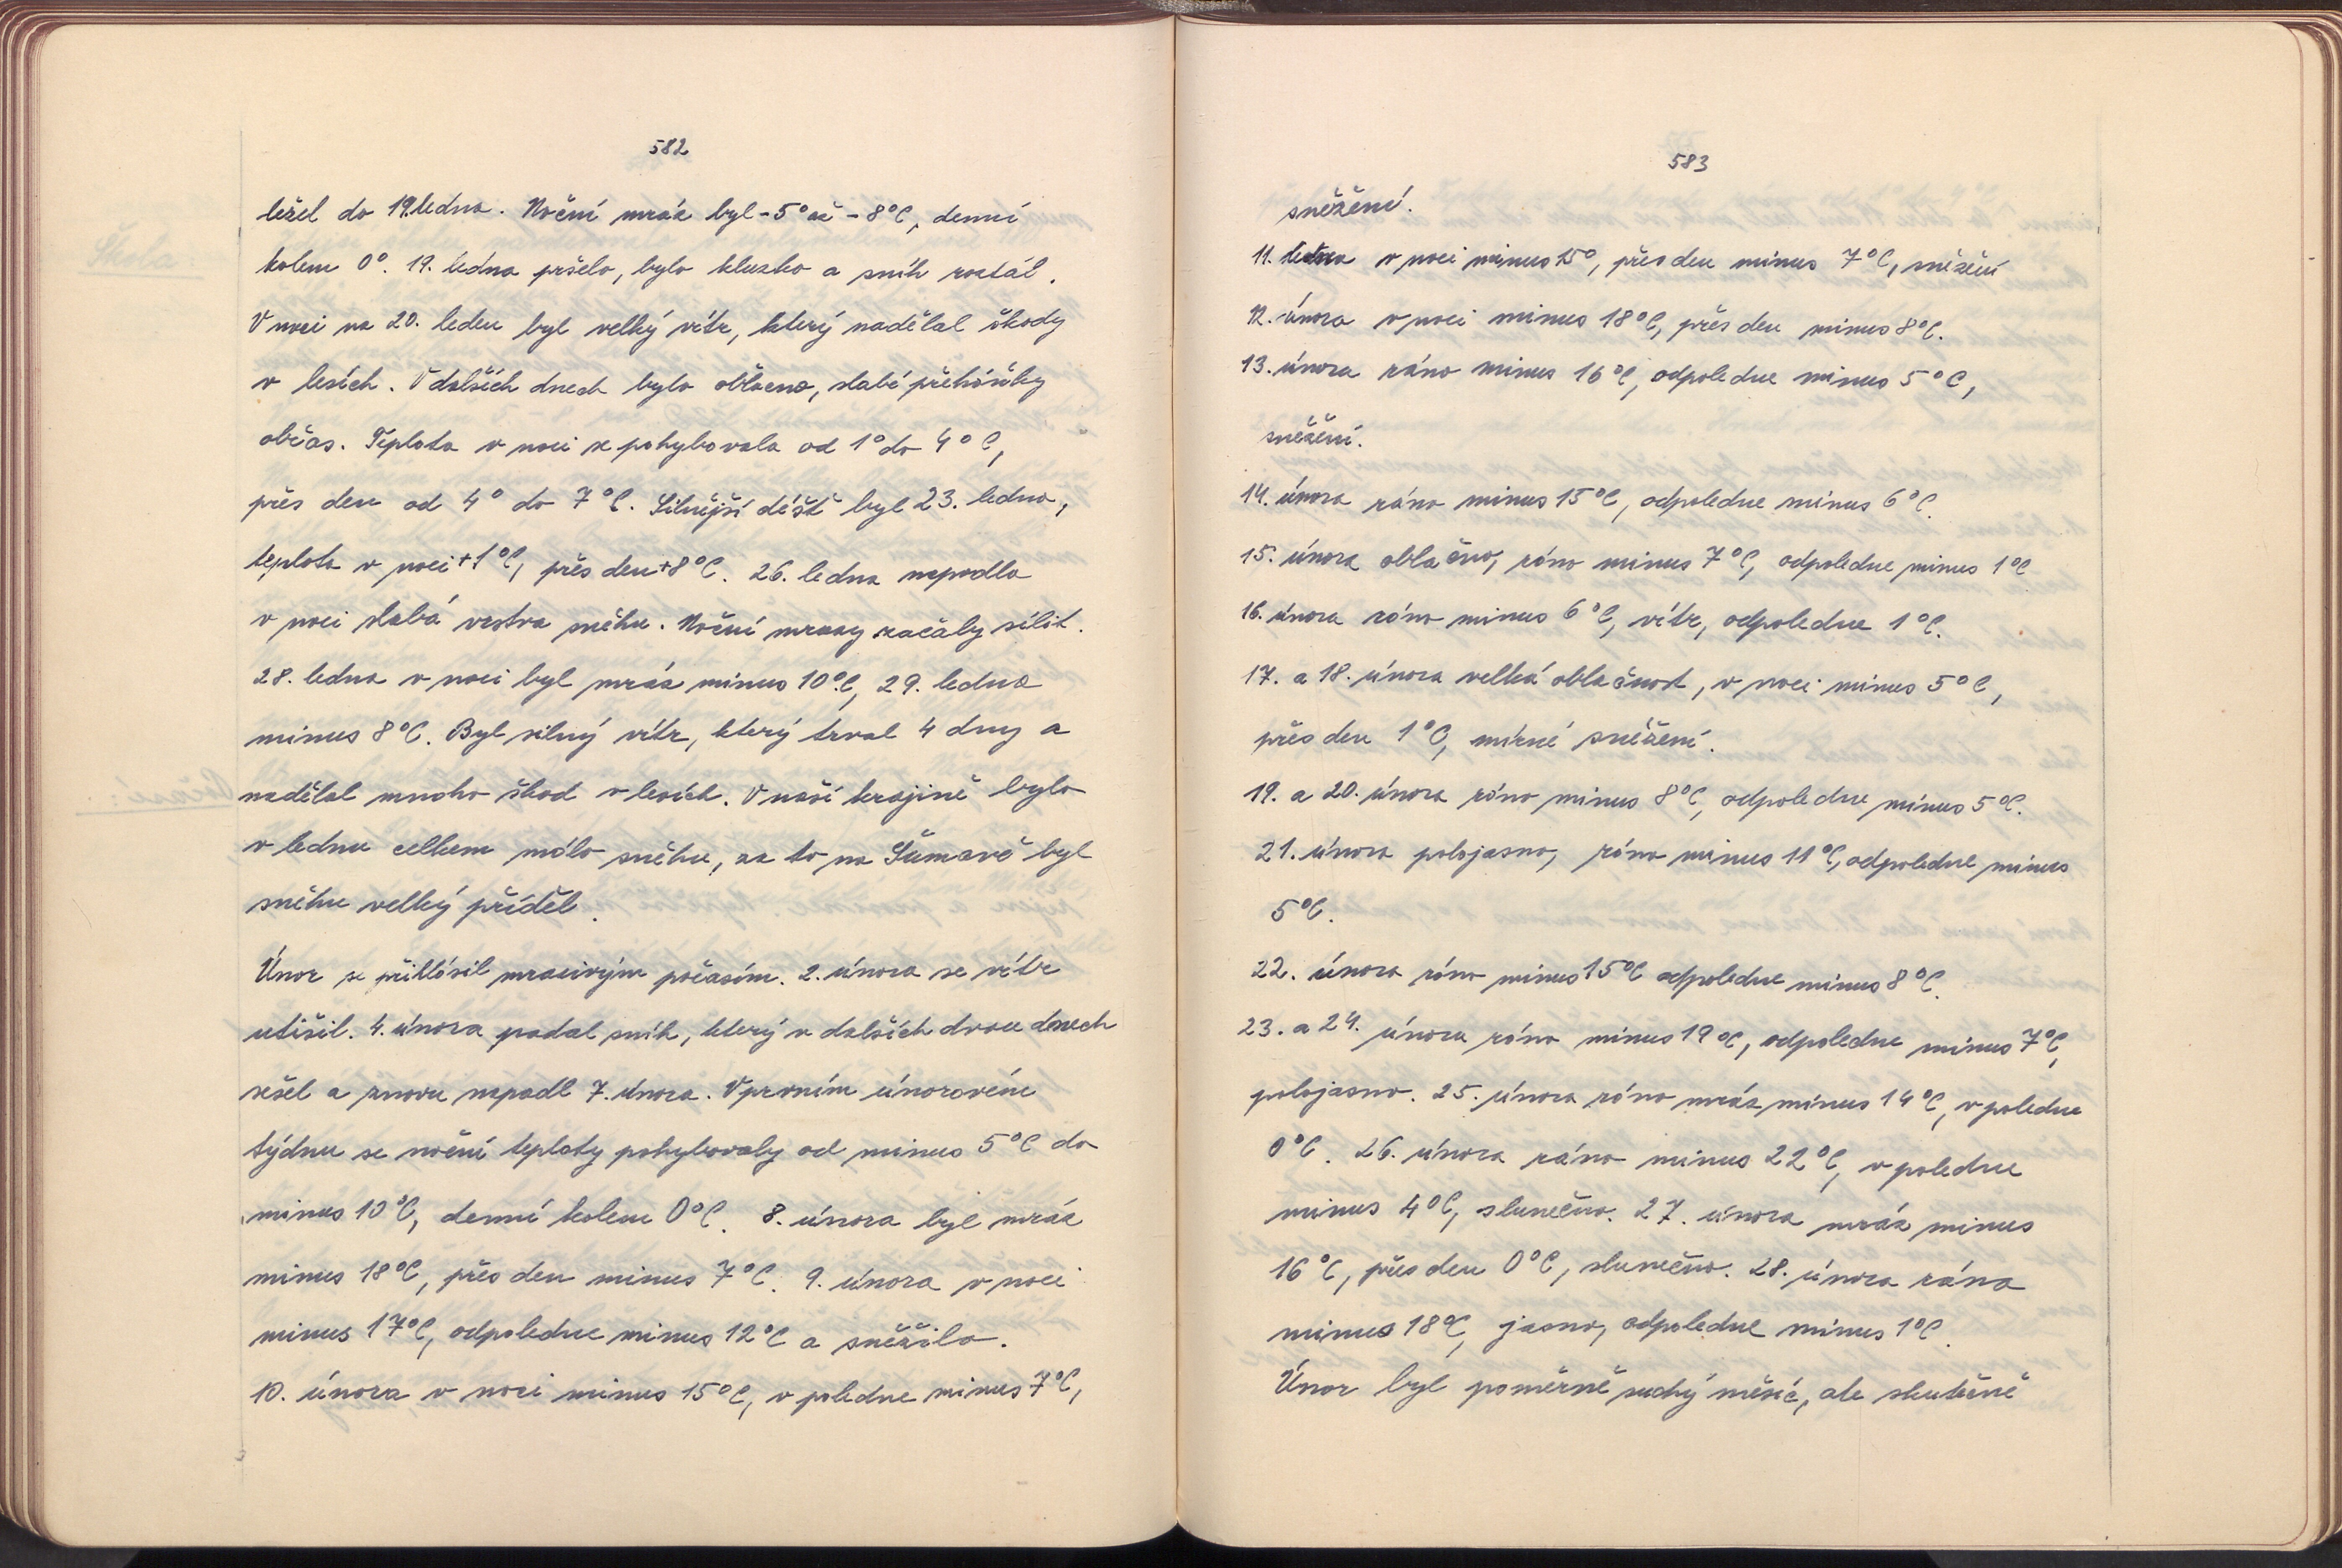 582
ležel do 19. ledna. Noční mráz byl -5° až -8°C, denní
kolem 0°. 19. ledna pršelo, bylo kluzko a sníh roztál.
V noci na 20. leden byl velký vítr, který nadělal škody
v lesích. V dalších dnech bylo oblačno, slabé přeháňky
občas. Teplota v noci se pohybovala od 1° do 4°C,
přes den od 4° do 7°C. Silnější déšť byl 23. ledna,
teplota v noci +1°C, přes den +8°C. 26. ledna napadla
v noci slabá vrstva sněhu. Noční mrazy začaly sílit.
28. ledna v noci byl mráz minus 10°C, 29. ledna
minus 8°C. Byl silný vítr, který trval 4 dny a
nadělal mnoho škod v lesích. V naší krajině bylo
v lednu celkem málo sněhu, za to na Šumavě byl
sněhu velký příděl.
Únor se přihlásil mrazivým počasím. 2. února se vítr
utišil. 4. února padal sníh, který v dalších dvou dnech
sešel a znovu napadl 7. února. V prvním únorovém
týdnu se noční teploty pohybovaly od minus 5°C do
minus 10°C, denní kolem 0°C. 8. února byl mráz
minus 18°C, přes den minus 7°C. 9. února v noci
minus 17°C, odpoledne minus 12°C a sněžilo.
10. února v noci minus 15°C, v poledne minus 7°C,
583
sněžení.
11. února v noci minus 15°, přes den minus 7°C, sněžení
12. února v noci minus 18°C, přes den minus 8°C.
13. února ráno minus 16°C, odpoledne minus 5°C,
sněžení.
14. února ráno minus 15°C, odpoledne minus 6°C.
15. února oblačno, ráno minus 7°C, odpoledne minus 1°C
16. února ráno minus 6°C, vítr, odpoledne 1°C.
17. a 18. února velká oblačnost, v noci minus 5°C,
přes den 1°C, mírné sněžení.
19. a 20. února ráno minus 8°C, odpoledne minus 5°C.
21. února polojasno, ráno minus 11°C, odpoledne minus
5°C.
22. února ráno minus 15°C odpoledne minus 8°C.
23. a 24. února ráno minus 19°C, odpoledne minus 7°C,
polojasno. 25. února ráno mráz minus 14°C, v poledne
0°C. 26. února ráno minus 22°C, v poledne
minus 4°C, slunečno. 27. února mráz minus
16°C, přes den 0°C, slunečno. 28. února ráno
minus 18°C, jasno, odpoledne minus 1°C.
Únor byl poměrně suchý měsíc, ale skutečně